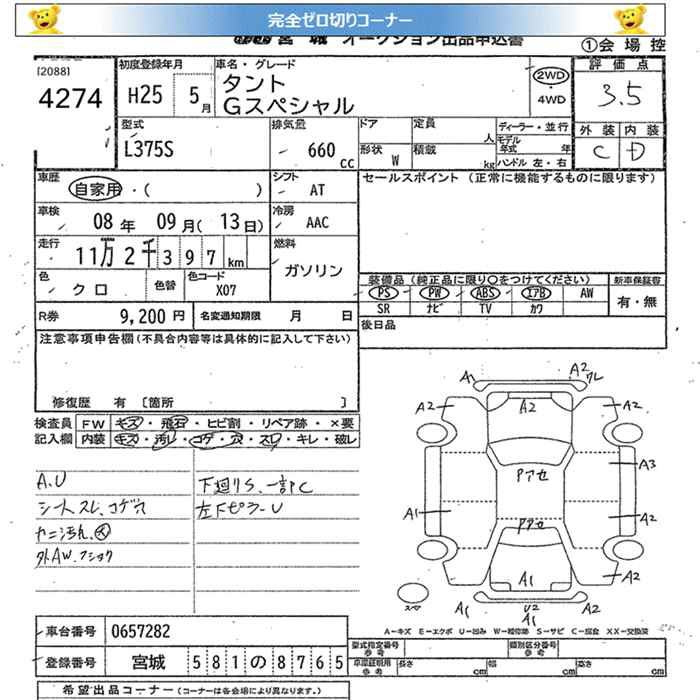 完全ゼロ切りコーナー
宮城 オークション出品申込書
①会場控
[2088]
4274
初度登録年月
H25 5月
車名・グレード
タント
Gスペシャル
2WD
・
4WD
評価点
3.5
外装 内装
C D
型式
L375S
排気量
660 cc
ドア 定員 人
形状 W 積載 kg
ディーラー・並行
モデル年式 年
ハンドル 左・右
車歴
自家用・( )
シフト
AT
セールスポイント (正常に機能するものに限ります)
車検
08年 09月( 13日)
冷房
AAC
走行
11万2千397km
燃料
ガソリン
色
クロ
色替
色コード
X07
装備品(純正品に限り○をつけてください)
新車保証書
PS PW ABS エアB AW
SR ナビ TV カワ
有・無
R券 9,200円
名変通知期限 月 日
後日品
注意事項申告欄(不具合内容等は具体的に記入して下さい)
修復歴 有 〔箇所 〕
検査員記入欄
FW キズ・飛石・ヒビ割・リペア跡・×要
内装 キズ・汚レ・コゲ・穴・スレ・キレ・破レ
A.U
シートスレ、コゲ穴
外AW.
下廻りS、一部C
左下ピラーU
A1
A2
A2
A2
A2
A3
Pアセ
A1
A2
Pアセ
A1
A2
A1
U2
A1
A2
A-キズ E-エクボ U-凹み W-補修跡 S-サビ C-腐食 XX-交換済
車台番号 0657282
登録番号 宮城 581の8765
型式指定番号 参考
類別区分番号 参考
車庫証明用 参考
長さ cm 幅 cm 高さ cm
希望出品コーナー(コーナーは各会場により異なります。)